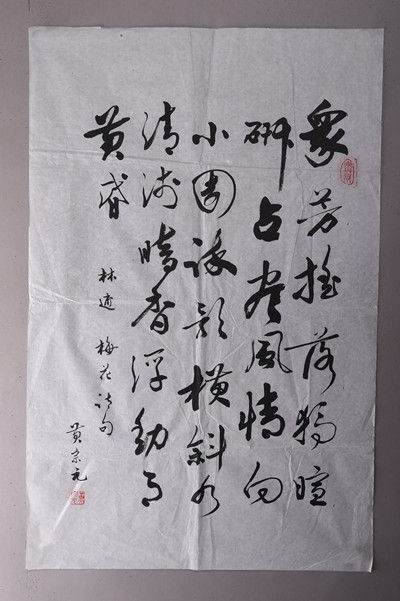 眾芳搖落獨暄
妍占盡風情向
小園疏影橫斜水
清淺暗香浮動月
黄昏
林逋 梅花诗句
黄宗元